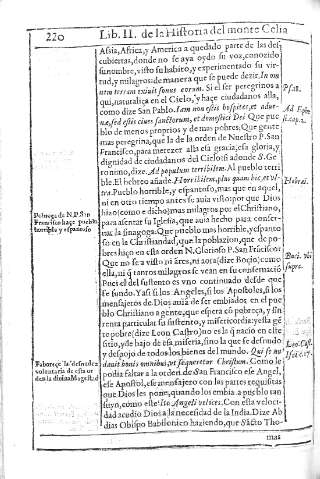 220
Lib. II. de la Historia del monte Celia
Assia, Africa, y America a quedado parte de las des
cubiertas, donde no se aya oydo su voz, conozido
su nombre, visto su habito, y experimentado su vir-
tud, y milagros: de manera que se puede dezir. In om
nem terram exiuit sonus eorum. Si el ser peregrinos a
qui, naturaliça en el Cielo, y haçe ciudadanos alla,
como dize San Pablo. Iam non estis hospites, et aduc-
næ, sed estis ciues sanctorum, et domestici Dei Que pue
blo de menos proprios y de mas pobres. Que gente
mas peregrina, que la de la orden de Nuestro P. San
Francisco, para merezer alla esta gracia, esa gloria, y
dignidad de ciudadanos del Cielo; si adonde S. Ge-
ronimo, dize. Ad populum terribilem. Al pueblo terri
ble. El hebreo añade. Horribilem, plus quam hec, et vl-
tra. Pueblo horrible, y espantoso, mas que en aquel,
ni en otro tiempo antes se auia visto: por que Dios
hizo (como e dicho) mas milagros por el Christiano,
para asentar su Iglesia, que auia hecho para conser-
uar la sinagoga. Que pueblo mas horrible, y espanto
so en la Christiandad, que la poblacion, que de po-
bres hiço en esta orden N. Glorioso P. San Francisco
Que no se a visto ni ätes, ni aora (dize Bozio) como
ella, ni q̃ tantos milagros se vean en su conseruació
Pues el del sustento es vno continuado desde que
se fundo. Y asi si los Angeles, si los Apostoles, si los
mensajeros de Dios auia de ser embiados en el pue
blo Christiano a gente, que espera cõ pobreça, y sin
renta particular su sustento, y misericordia: y esta gé
te pobre (dize Leon Castro) no es la q̃ nacio en este
sitio, y de bajo de esa miseria, sino la que se desnudo
y despojo de todos los bienes del mundo. Qui se nu
dauit bonis omnibus, vt sequeretur Christum. Como le
podia faltar a la orden de San Francisco ese Angel,
ese Apostol, ese mensajero con las partes requisitas
que Dios les pone, quando los embia a pueblo tan
suyo, como este? Ite Angeli veloces. Con esta veloci-
dad acudio Dios a la necesidad de la India. Dize Ab
dias Obispo Babilonico haziendo, que Sãcto Tho-
mas
Pobreça de N. P. San
Francisco haçe pueblo
horrible y espantoso
Pobreça la desnudez
voluntaria de esta or
Ps. 18.
Ad Ephe
si. cap. 2.
Hebrei.
Bozi. vbi
supra.
Leo. Cast.